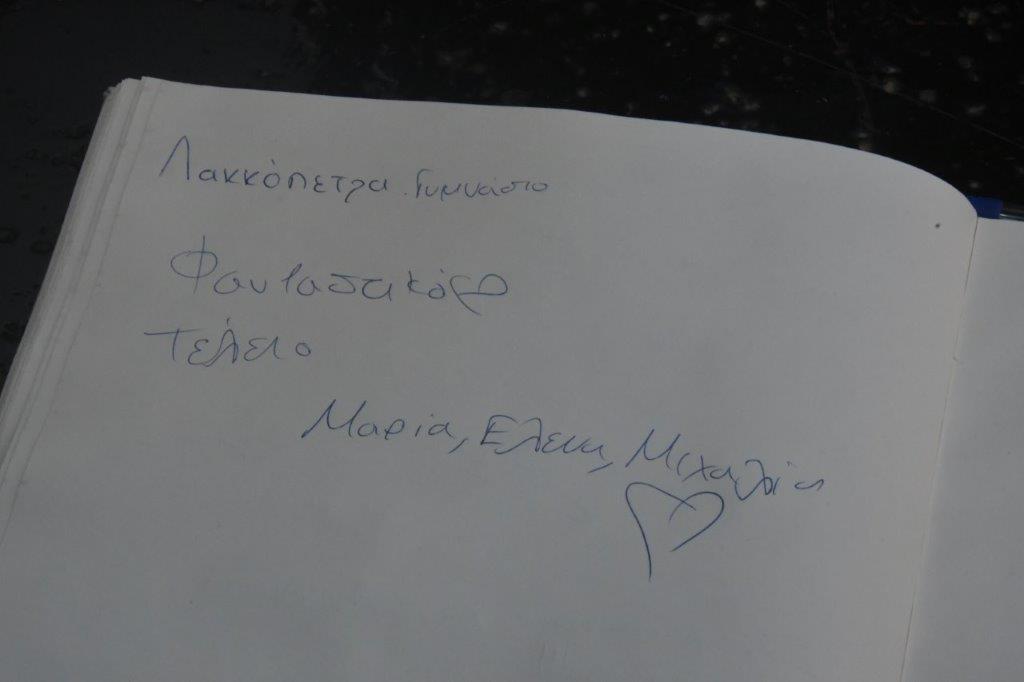 Λακκόπετρα Γυμνάσιο
Φανταστικό
Τέλειο
Μαρία, Ελενη,